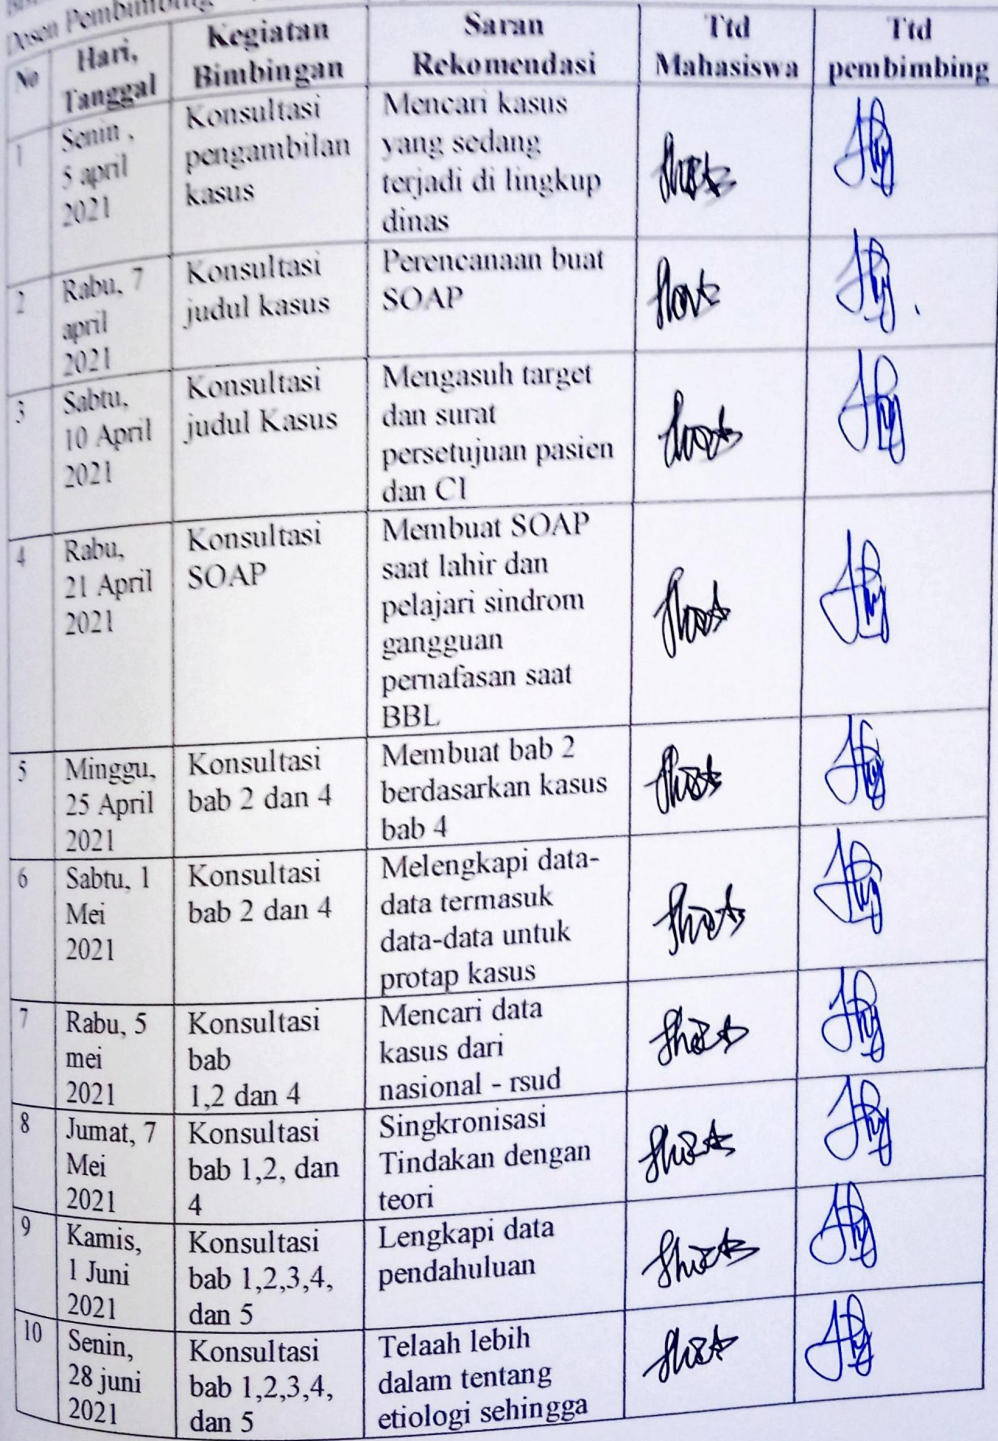 Dosen Pembimbing
No
Hari,
Tanggal
Kegiatan
Bimbingan
Saran
Rekomendasi
Ttd
Mahasiswa
Ttd
pembimbing
1
Senin ,
5 april
2021
Konsultasi
pengambilan
kasus
Mencari kasus
yang sedang
terjadi di lingkup
dinas
2
Rabu, 7
april
2021
Konsultasi
judul kasus
Perencanaan buat
SOAP
3
Sabtu,
10 April
2021
Konsultasi
judul Kasus
Mengasuh target
dan surat
persetujuan pasien
dan CI
4
Rabu,
21 April
2021
Konsultasi
SOAP
Membuat SOAP
saat lahir dan
pelajari sindrom
gangguan
pernafasan saat
BBL
5
Minggu,
25 April
2021
Konsultasi
bab 2 dan 4
Membuat bab 2
berdasarkan kasus
bab 4
6
Sabtu, 1
Mei
2021
Konsultasi
bab 2 dan 4
Melengkapi data-
data termasuk
data-data untuk
protap kasus
7
Rabu, 5
mei
2021
Konsultasi
bab
1,2 dan 4
Mencari data
kasus dari
nasional - rsud
8
Jumat, 7
Mei
2021
Konsultasi
bab 1,2, dan
4
Singkronisasi
Tindakan dengan
teori
9
Kamis,
1 Juni
2021
Konsultasi
bab 1,2,3,4,
dan 5
Lengkapi data
pendahuluan
10
Senin,
28 juni
2021
Konsultasi
bab 1,2,3,4,
dan 5
Telaah lebih
dalam tentang
etiologi sehingga